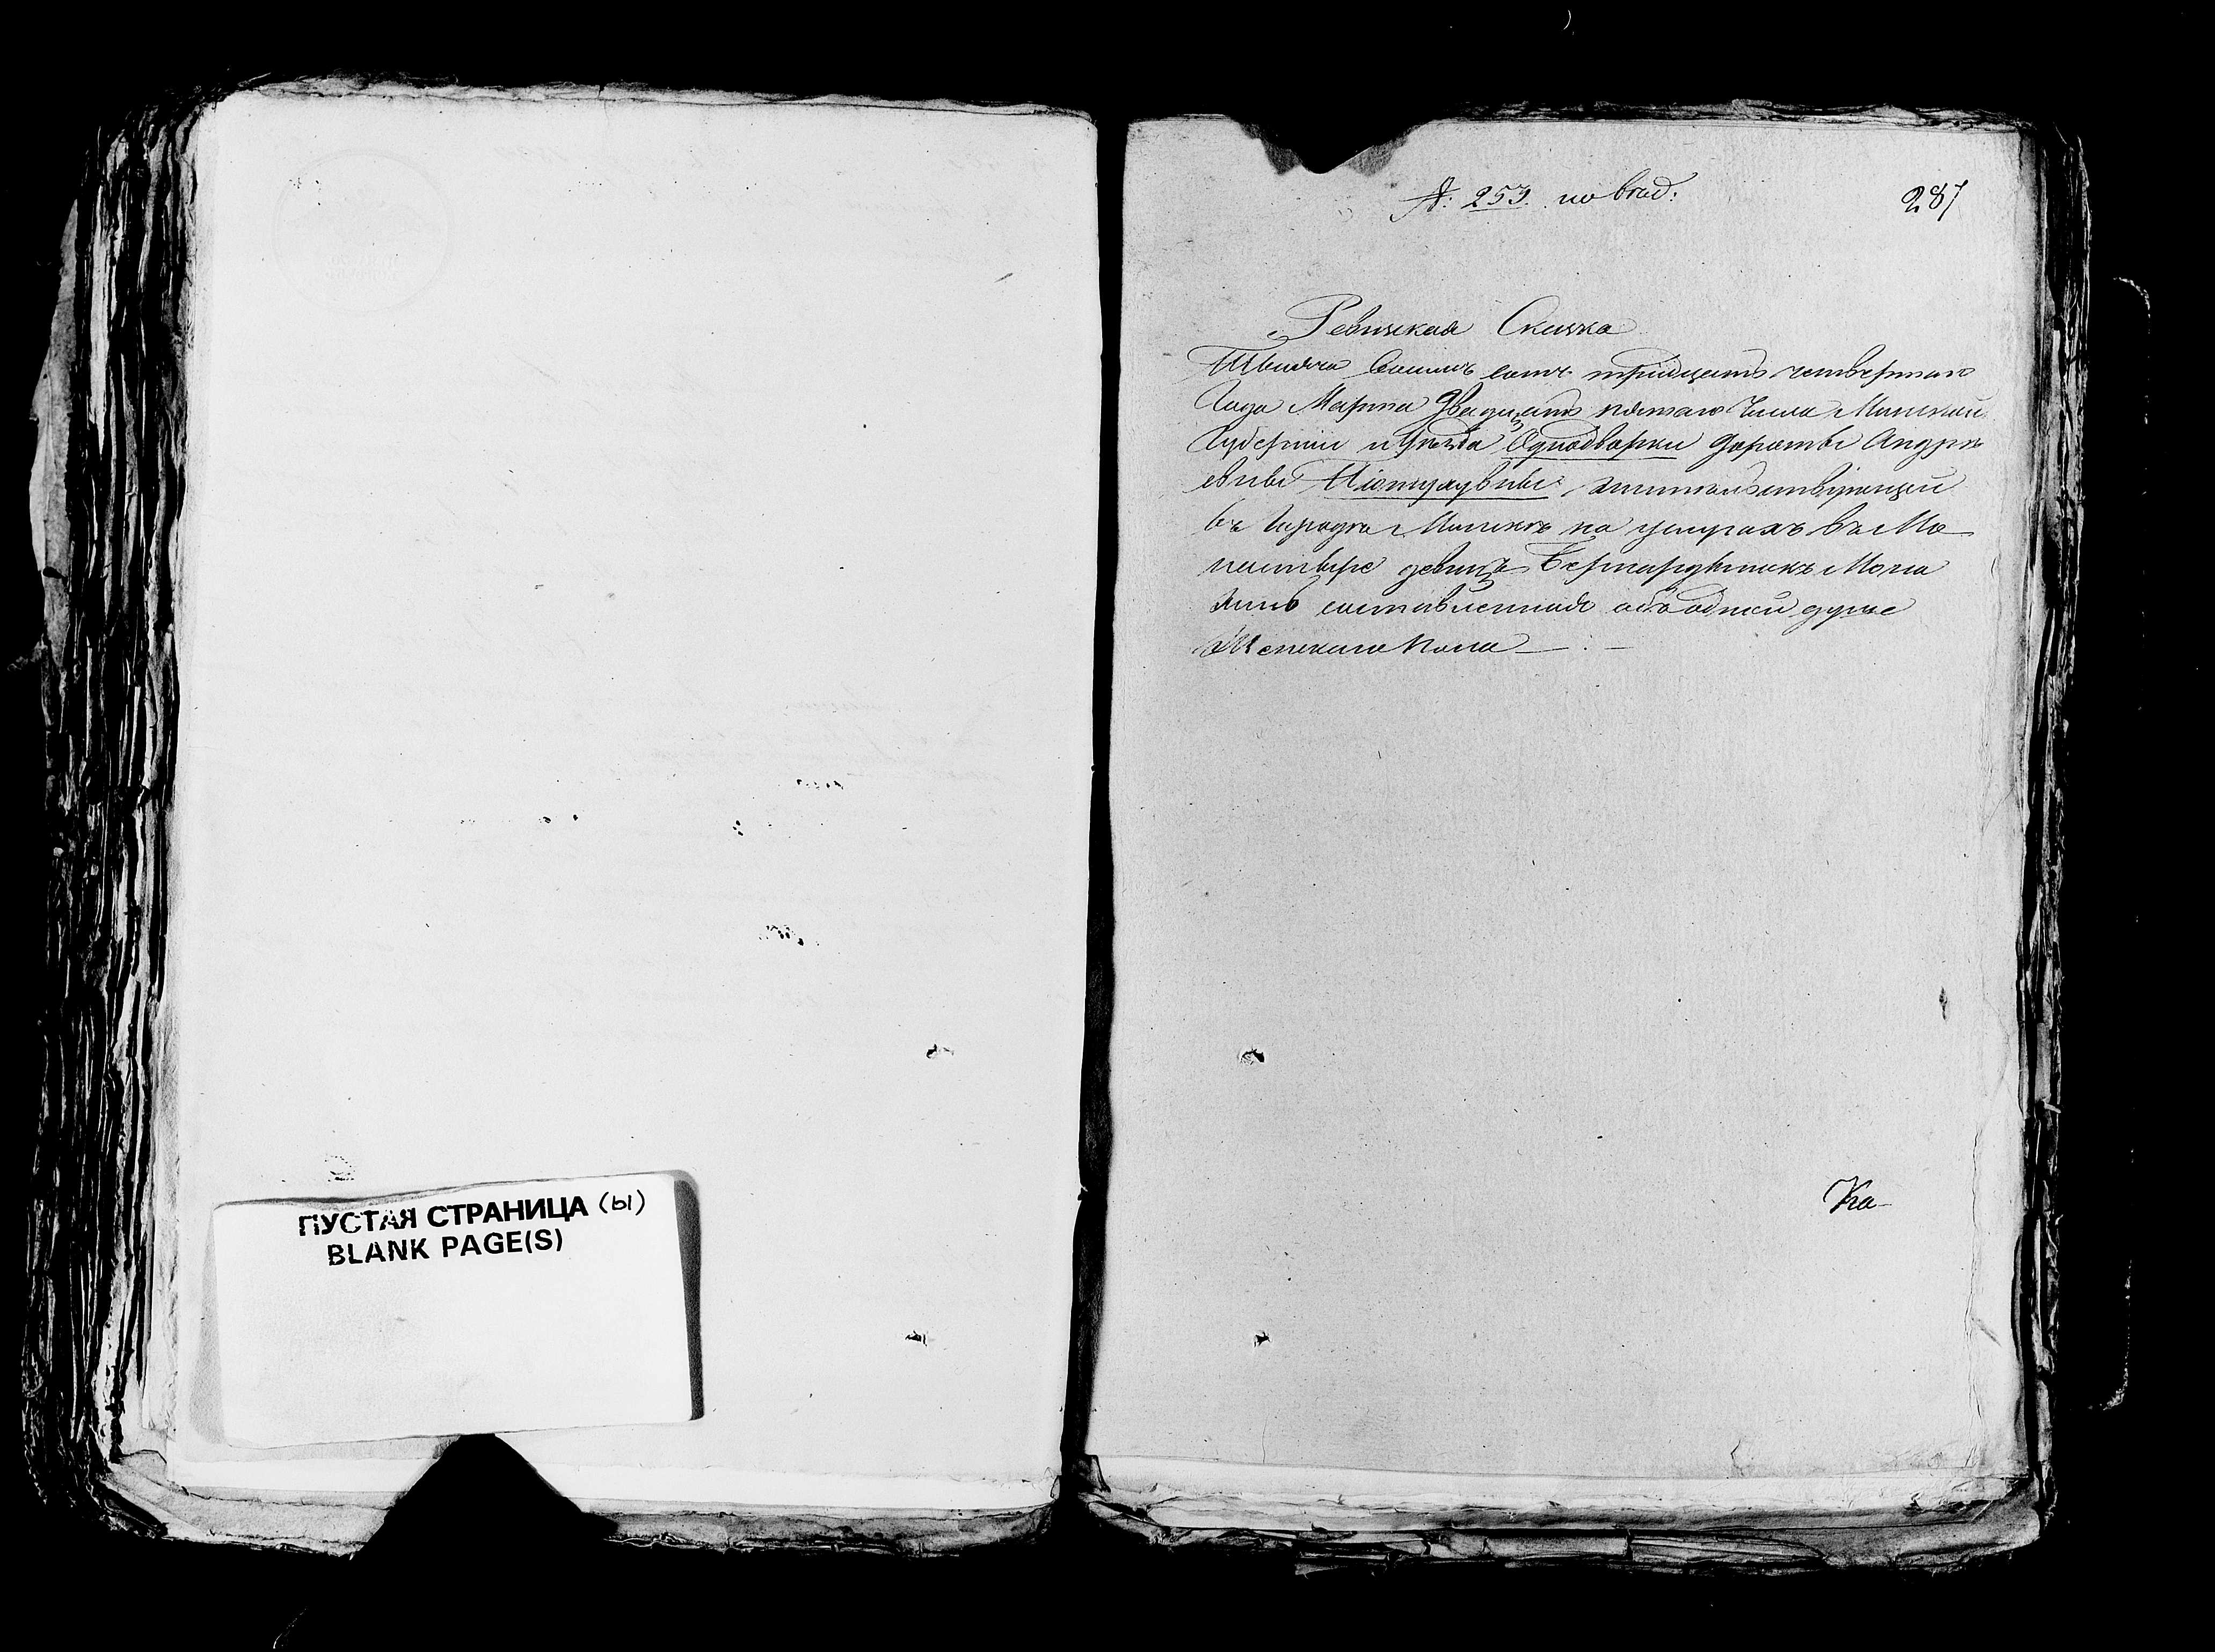 ПУСТАЯ СТРАНИЦА (ы)
BLANK PAGE(S)
№: 253. по
287
Ревизская Сказка
Тысяча восемь сотъ тридцать четвертаго
Года Марта двадцать пятаго Числа Минской
Губерніи и уезда Однодворки Дороты Андре
евны жительствующей
въ Городе Минске на услугахъ въ Мо
настыре девицъ Бернардынокъ Мона
хинь составленная объ одной душе
Женскаго Пола